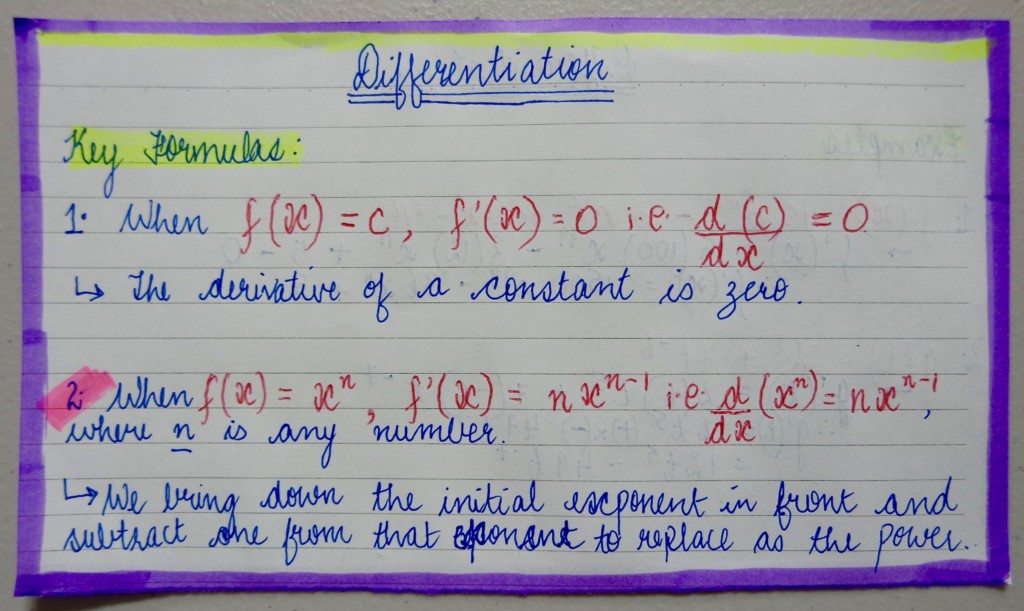 Differentiation
Key Formulas:
1. When f(x) = c, f'(x) = 0 i.e. d(c)/dx = 0
↳ The derivative of a constant is zero.
2. When f(x) = xⁿ, f'(x) = nxⁿ⁻¹ i.e. d/dx (xⁿ) = nxⁿ⁻¹,
where n is any number.
↳ We bring down the initial exponent in front and
subtract one from that exponent to replace as the power.